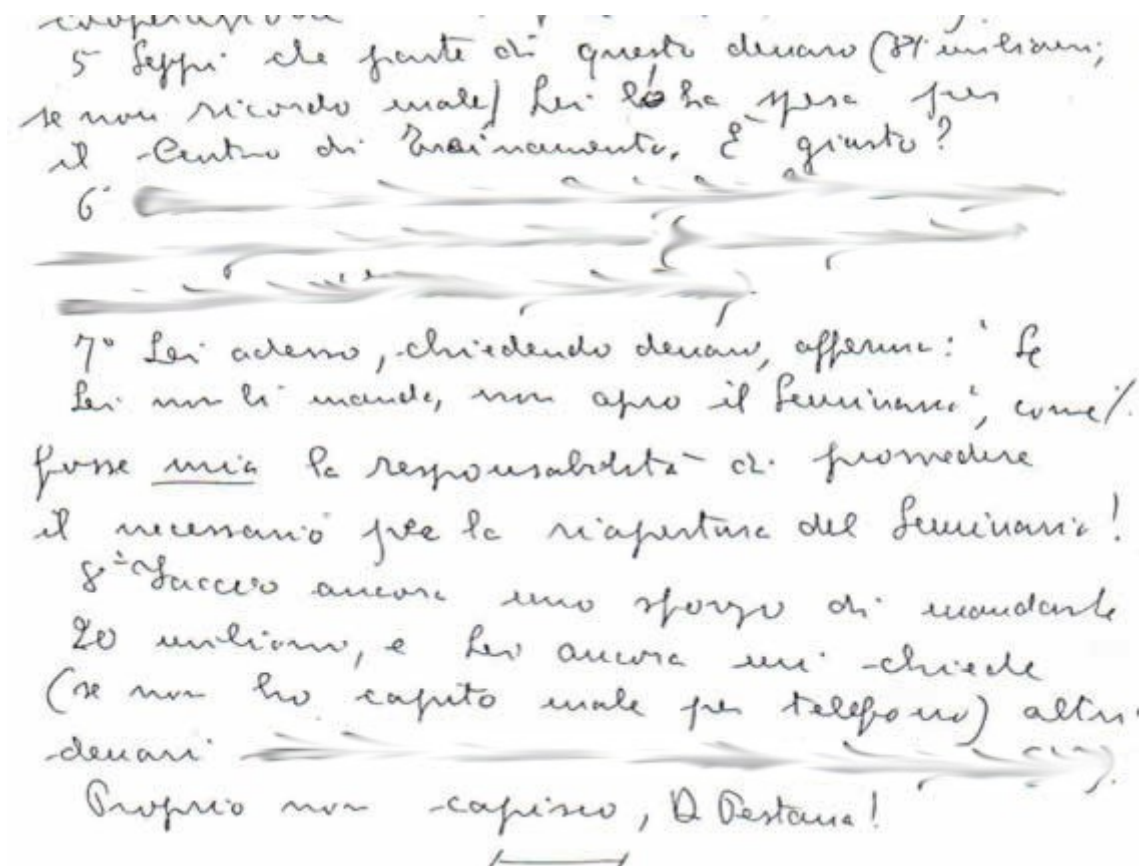 cooperazione
5 Seppi che parte di questo denaro (37 milioni,
se non ricordo male) Lei lo ha spesa per
il Centro di Trainamento. È giusto?
6°
7° Lei adesso, chiedendo denaro, afferma: "Se
Lei non li manda, non apro il Seminario", come
fosse mia la responsabilità di provvedere
il necessario per la riapertura del Seminario!
8° Faccio ancora uno sforzo di mandarle
20 milioni, e Lei ancora mi chiede
(se non ho capito male per telefono) altri
denari
Proprio non capisco, D Pestana!